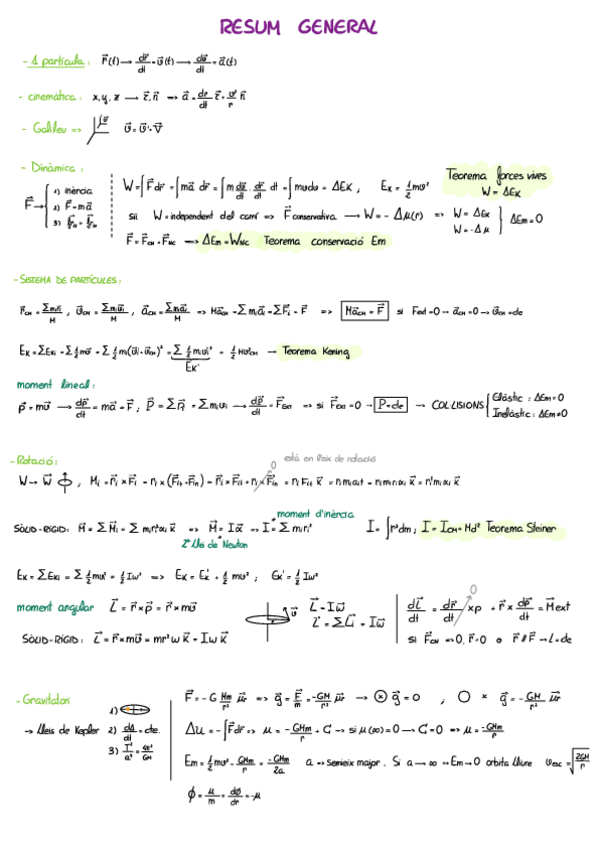 RESUM GENERAL
- 1 partícula: r⃗(t) → dr⃗/dt = v⃗(t) → dv⃗/dt = a⃗(t)
- cinemàtica: x, y, z → τ⃗, n⃗ => a⃗ = dv/dt τ⃗ + v²/r n⃗
- Galileu => v⃗ = v⃗' + V⃗
- Dinàmica:
F⃗ → 1) inèrcia
2) F⃗ = m a⃗
3)
W = ∫ F⃗ dr⃗ = ∫ m a⃗ dr⃗ = ∫ m dv⃗/dt · dr⃗/dt dt = ∫ m v dv = ΔEk, Ek = ½ mv²
Teorema forces vives
W = ΔEk
Sii W = independent del camí => F⃗ conservativa → W = - Δμ(r) => W = ΔEk
W = - Δμ
ΔEm = 0
F⃗ = F⃗cn + F⃗nc → ΔEm = Wnc Teorema conservació Em
- SISTEMA DE PARTÍCULES:
r⃗CM = Σmiri/M, v⃗CM = Σmivi/M, a⃗CM = Σmiai/M => Ma⃗CM = Σmia⃗i = ΣF⃗i = F⃗ => Ma⃗CM = F⃗ si Fext = 0 → a⃗CM = 0 → v⃗CM = cte
Ek = ΣEki = Σ½mv² = Σ½mi(v⃗i + v⃗CM)² = Σ½mivi² + ½Mv²CM → Teorema Köning
Ek'
moment lineal:
p⃗ = mv⃗ → dp⃗/dt = ma⃗ = F⃗, P⃗ = ΣP⃗i = Σmivi → dP⃗/dt = F⃗ext => si F⃗ext = 0 → P = cte → COL·LISIONS
Elàstic: ΔEm = 0
Inelàstic: ΔEm ≠ 0
- Rotació:
està en l'eix de rotació
0
W → W⃗, M⃗i = r⃗i × F⃗i
SÒLID-RÍGID: M⃗ = ΣM⃗i = Σmiri²αi k⃗ => M⃗ = Iα⃗ => I = Σmiri²
moment d'inèrcia
2ª Llei de Newton
I = ∫r²dm; I = ICM + Md² Teorema Steiner
Ek = ΣEki = Σ½mv² = ½Iω² => Ek = Ek' + ½mv²; Ek' = ½Iω²
moment angular L⃗ = r⃗ × p⃗ = r⃗ × mv⃗
v⃗
L⃗ = Iω⃗
L⃗ = ΣL⃗i = Iω⃗
0
dL⃗/dt = dr⃗/dt × p + r⃗ × dp⃗/dt = M⃗ext
SÒLID-RÍGID: L⃗ = r⃗ × mv⃗ = mr²ω k⃗ = Iω k⃗
- Gravitation
→ Lleis de Kepler
1)
2) dA/dt = cte.
3) T²/a³ = 4π²/GM
F⃗ = -G Mm/r² μ⃗r => g⃗ = F⃗/m = -GM/r² μ⃗r → g⃗ = 0, g⃗ = -GM/r² μ⃗r
Δu = -∫F⃗dr => μ = -GMm/r + C → si μ(∞) = 0 → C = 0 => μ = -GMm/r
Em = ½mv² - GMm/r = -GMm/2a a => Semieix major. Si a → ∞ => Em → 0 orbita lliure vesc = √2GM/r